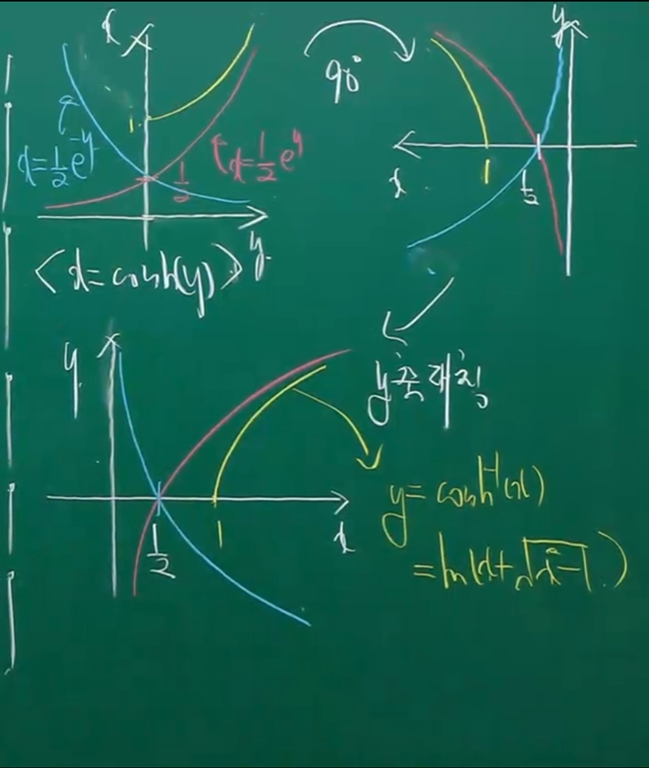 x
1
x=½e^-y
½
x=½e^y
y
<x=cosh(y)>
90°
y
x
1
½
y축대칭
y
½
1
x
y=cosh⁻¹(x)
=ln(x+√x²-1)